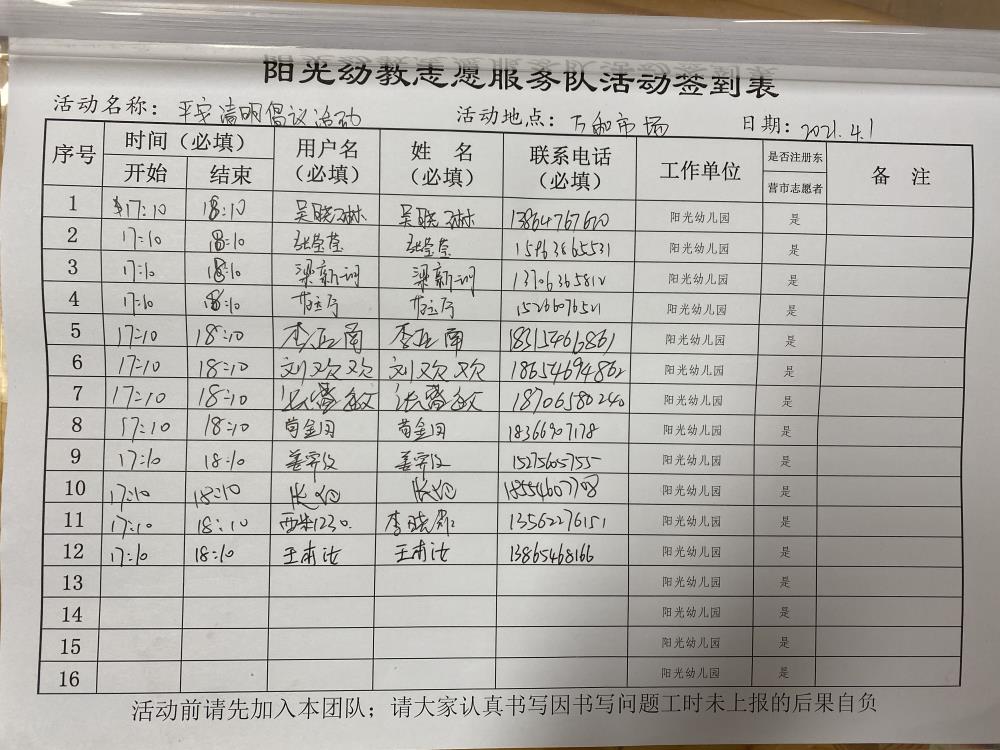 阳光幼教志愿服务队活动签到表
活动名称：平安清明倡议活动 活动地点：万和市场 日期：2021.4.1
序号 时间（必填） 用户名（必填） 姓名（必填） 联系电话（必填） 工作单位 是否注册东营市志愿者 备注
开始 结束
1 17:10 18:10 吴晓琳 吴晓琳 13864767670 阳光幼儿园 是
2 17:10 18:10 张莹莹 张莹莹 15963865531 阳光幼儿园 是
3 17:10 18:10 梁新 梁新 13706365812 阳光幼儿园 是
4 17:10 18:10 15266076521 阳光幼儿园 是
5 17:10 18:10 李亚南 李亚南 18315461861 阳光幼儿园 是
6 17:10 18:10 刘欢欢 刘欢欢 18654694862 阳光幼儿园 是
7 17:10 18:10 敏 敏 18706580240 阳光幼儿园 是
8 17:10 18:10 苟金 苟金 18366907178 阳光幼儿园 是
9 17:10 18:10 15275605755 阳光幼儿园 是
10 17:10 18:10 阳光幼儿园 是
11 17:10 18:10 1230. 李晓 13562276151 阳光幼儿园 是
12 17:10 18:10 王 王 13865468166 阳光幼儿园 是
13 阳光幼儿园 是
14 阳光幼儿园 是
15 阳光幼儿园 是
16 阳光幼儿园 是
活动前请先加入本团队；请大家认真书写因书写问题工时未上报的后果自负